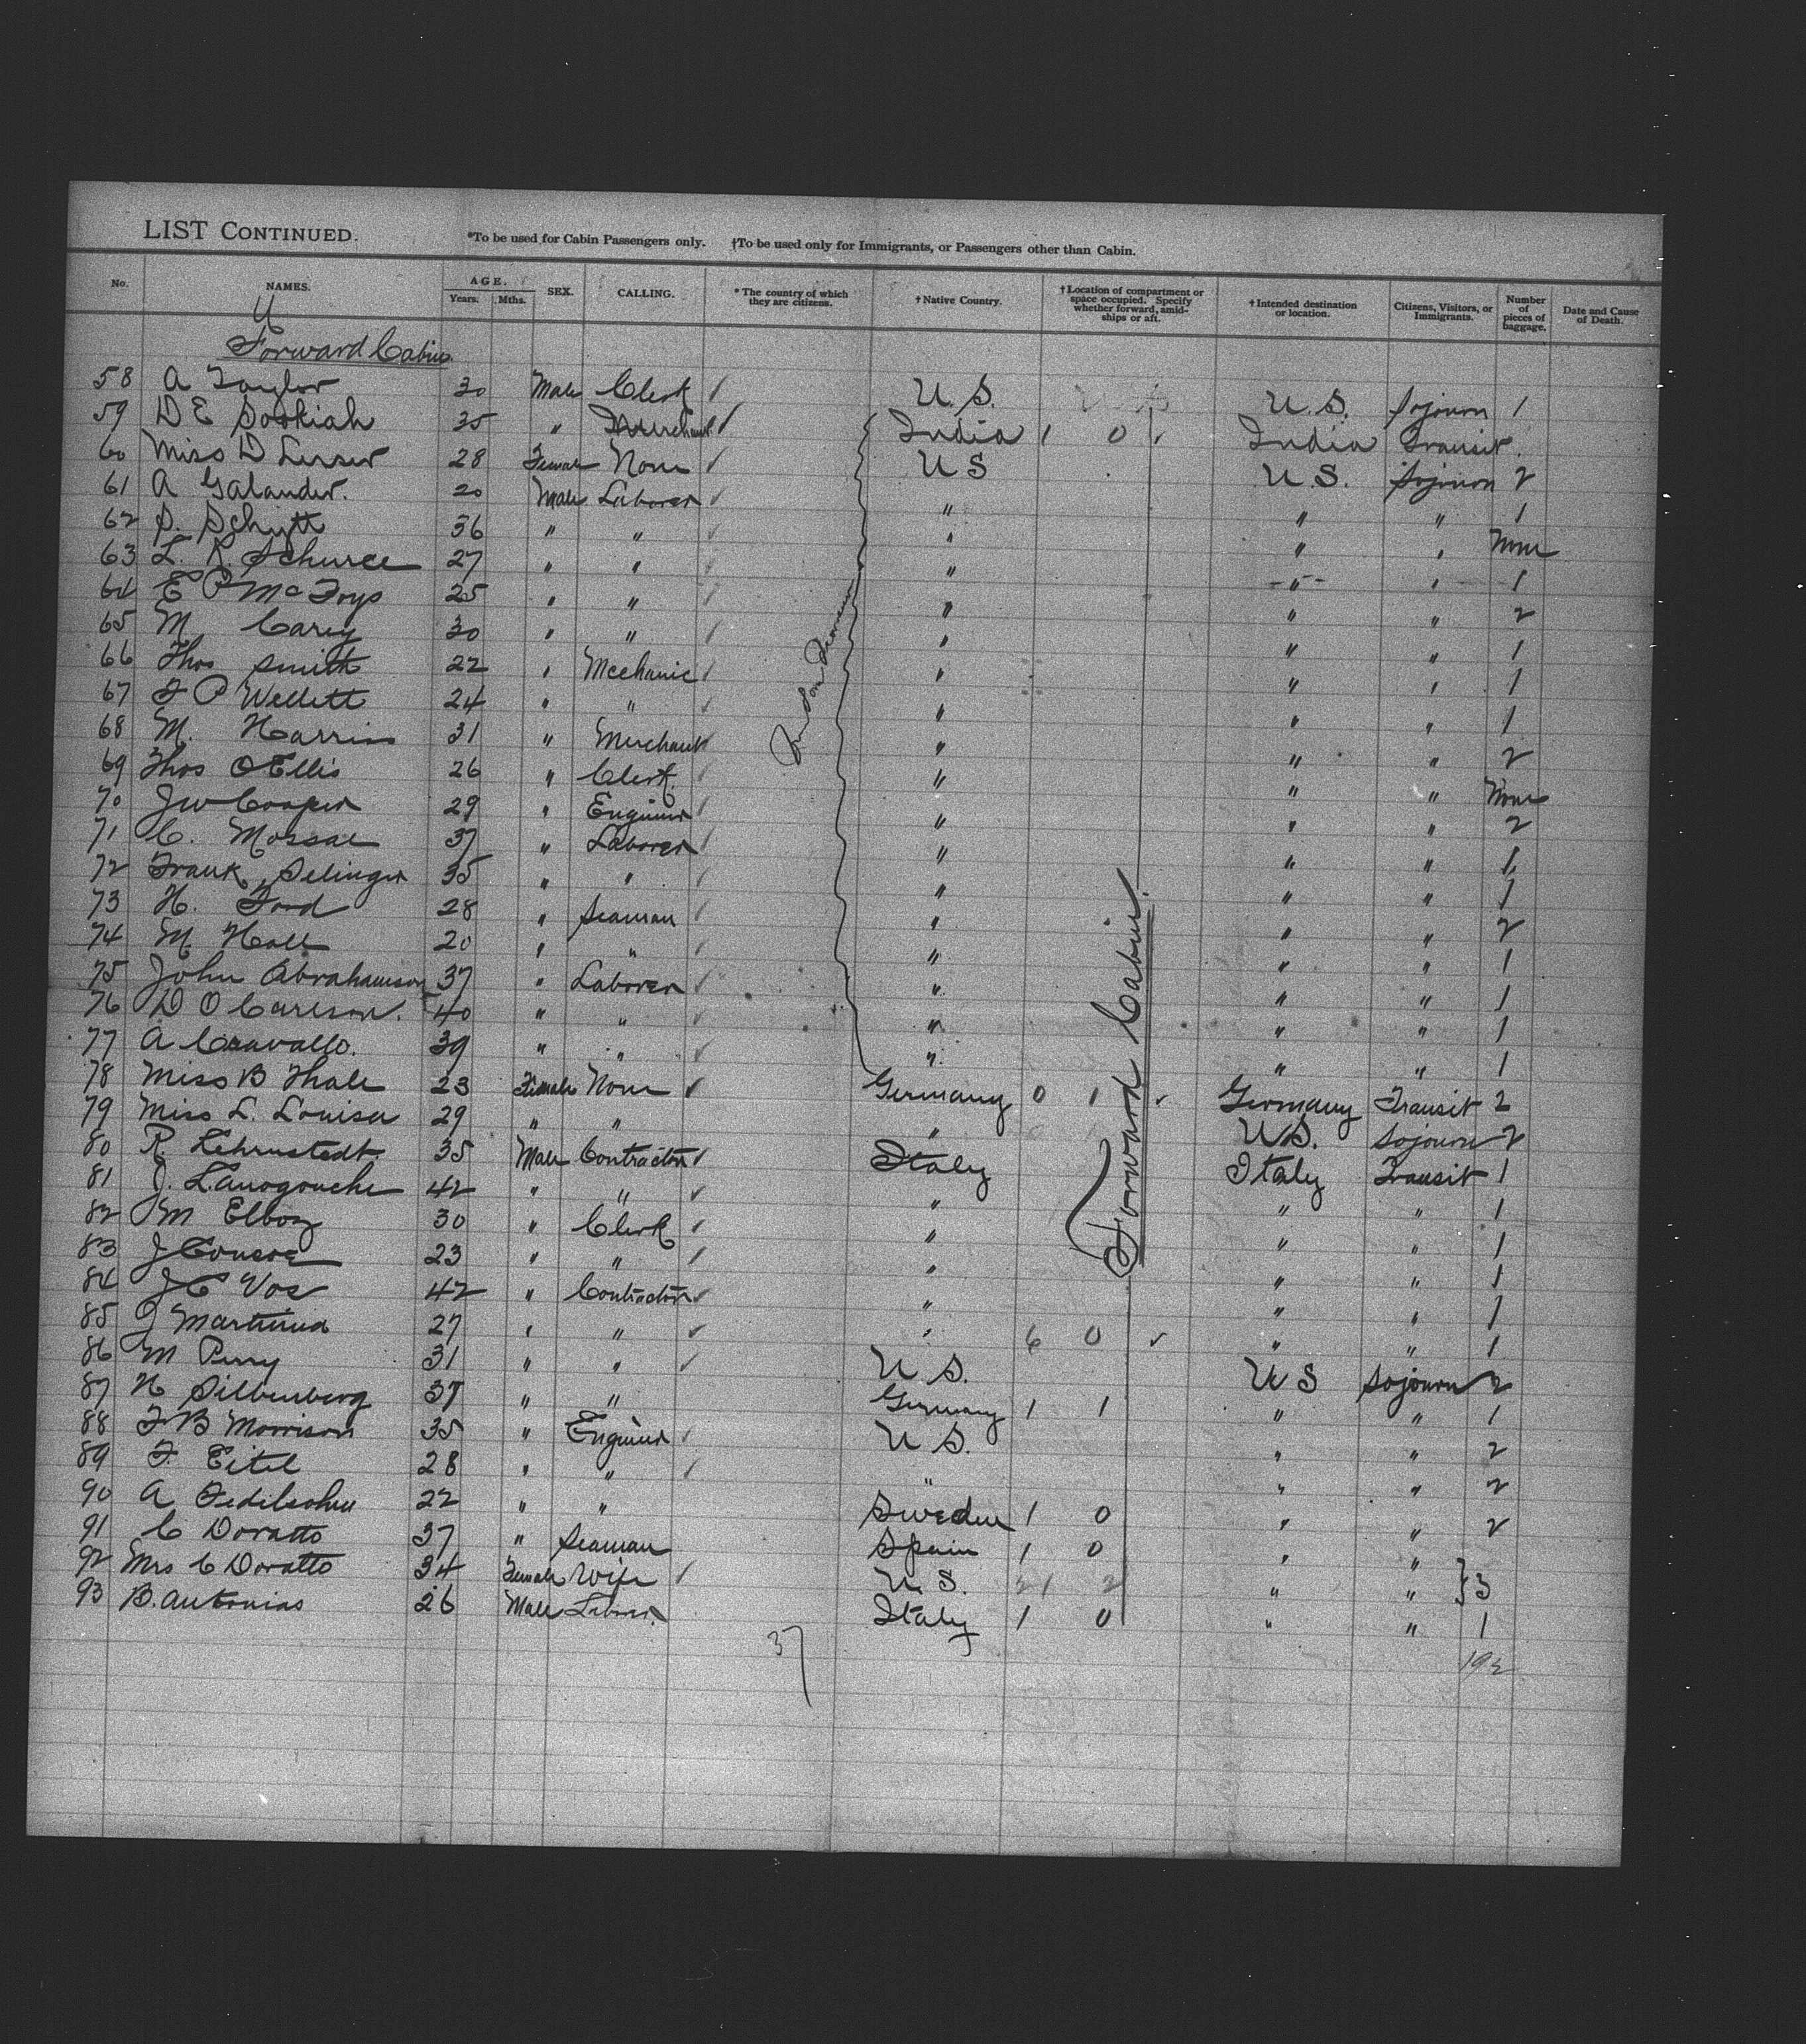 LIST CONTINUED. *To be used for Cabin Passengers only. †To be used only for Immigrants, or Passengers other than Cabin.
No. NAMES. AGE. Years. Mths. SEX. CALLING. * The country of which they are citizens. † Native Country. † Location of compartment or space occupied. Specify whether forward, amidships or aft. † Intended destination or location. Citizens, Visitors, or Immigrants. Number of pieces of baggage. Date and Cause of Death.
Forward Cabin
58 A Taylor 30 Male Clerk U.S. U.S. Sojourn 1
59 D E Sookiah 35 " Merchant India 1 0 India Transit
60 Miss D Lesser 28 Female None U S U.S. Sojourn 2
61 A Galander. 20 Male Laborer " " " 1
62 S. Schytt 36 " " " " " None
63 L. R. Schurce 27 " " " " " 1
64 E P McFoys 25 " " " " " 2
65 M Carey 30 " " " " " 1
66 Thos Smith 22 " Mechanic " " " 1
67 F P Wellett 24 " " " " " 1
68 M. Harris 31 " Merchant " " " 2
69 Thos O Ellis 26 " Clerk " " " None
70 J W Cooper 29 " Engineer " " " 2
71 C. Mossae 37 " Laborer " " " 1
72 Frank Selinger 35 " " " " " 1
73 H. Ford 28 " Seaman " " " 2
74 M Hall 20 " " " " " 1
75 John Abrahamson 37 " Laborer " " " 1
76 D O Carlson. 40 " " " " " 1
77 A Cravallo. 39 " " " " " 1
78 Miss B Thale 23 Female None Germany 0 1 Germany Transit 2
79 Miss L. Louisa 29 " " " U.S. Sojourn 2
80 R Lehrustedt. 35 Male Contractor Italy Italy Transit 1
81 J. Lanogouche 42 " " " " " 1
82 M Elboz 30 " Clerk " " " 1
83 J Consoe 23 " " " " " 1
84 J C Vos 42 " Contractor " " " 1
85 J Martinia 27 " " " 6 0 " " 1
86 M Perry 31 " " U.S. U S Sojourn 2
87 H Silberberg 37 " " Germany 1 1 " " 1
88 F B Morrison 35 " Engineer U S. " " 2
89 F. Eitel 28 " " " " " 2
90 A Fedilsohn 22 " " Sweden 1 0 " " 2
91 C Doratto 37 " Seaman Spain 1 0 " "
92 Mrs C Doratto 34 Female Wife U.S. " " } 3
93 B. Antonias 26 Male Labor. Italy 1 0 " " 1
Forward Cabin.
37
192